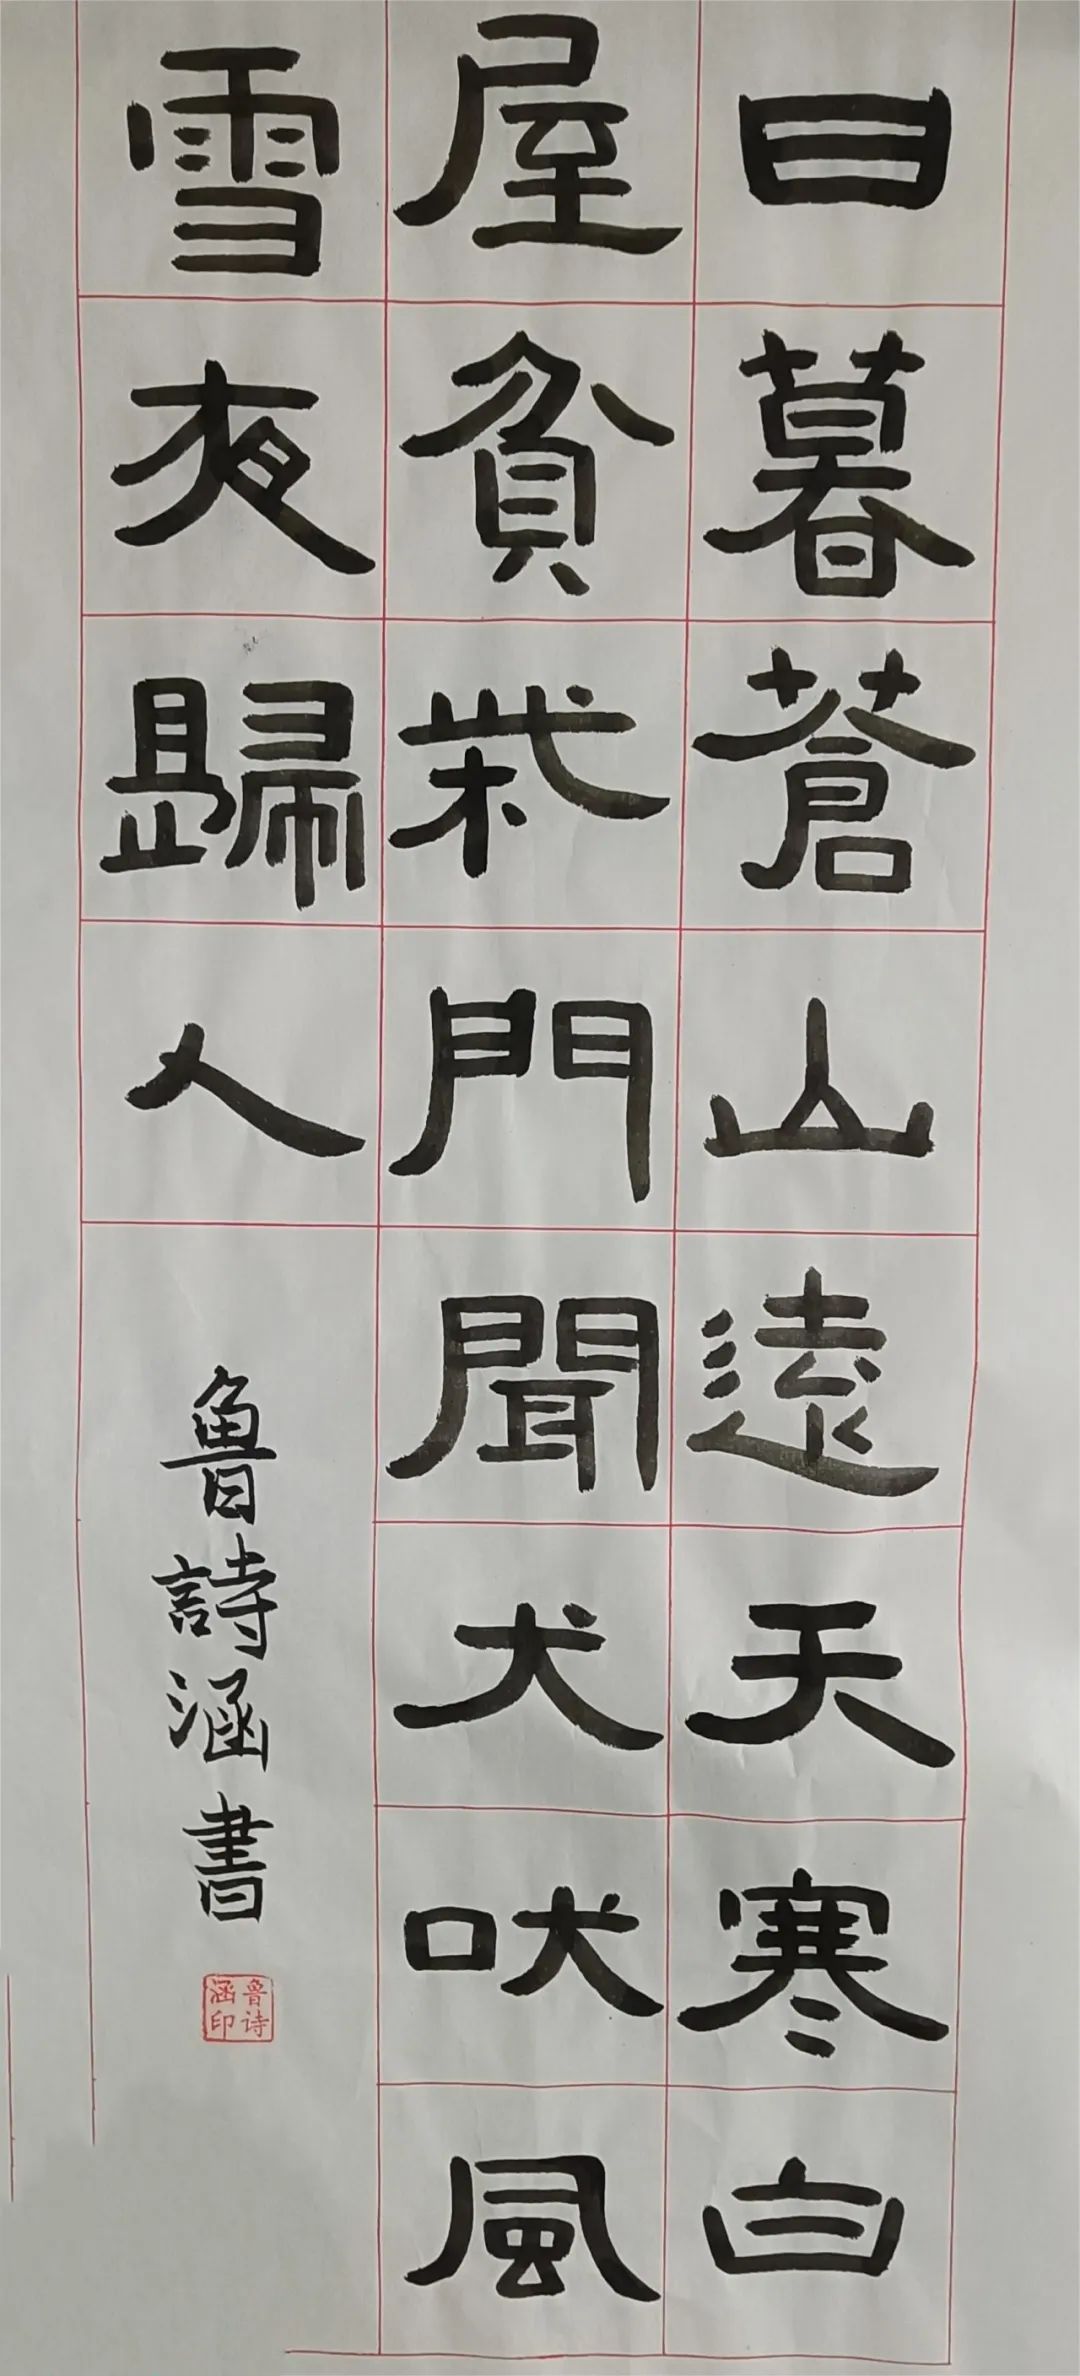 日暮蒼山遠天寒白
屋貧柴門聞犬吠風
雪夜歸人
魯詩涵書
鲁诗
涵印